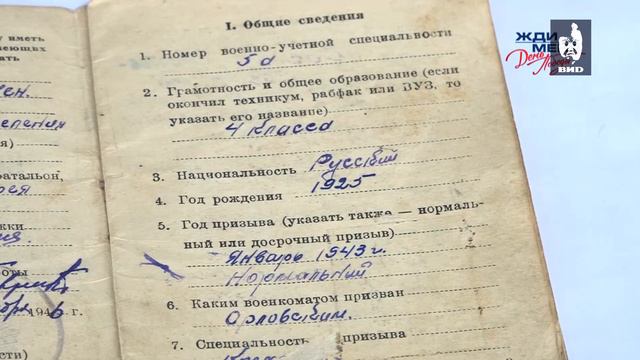 ЖДИ
МЕ
День
Победы
ВИD
уметь
теющих
ать
батальон,
рея
оты
194 6 г.
I. Общие сведения
1. Номер военно-учетной специальности
5а
2. Грамотность и общее образование (если
окончил техникум, рабфак или ВУЗ, то
указать его название)
4 класса
3. Национальность Русский
4. Год рождения 1925
5. Год призыва (указать также — нормаль-
ный или досрочный призыв)
Январь 1943 г.
Нормальный
6. Каким военкоматом призван
Орловским.
7. Специальность призыва